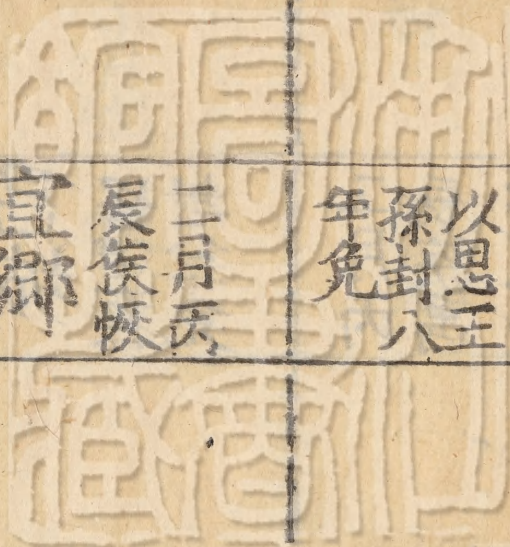 以思王
孫封八
年免
二月丙
辰侯恢
宜鄉